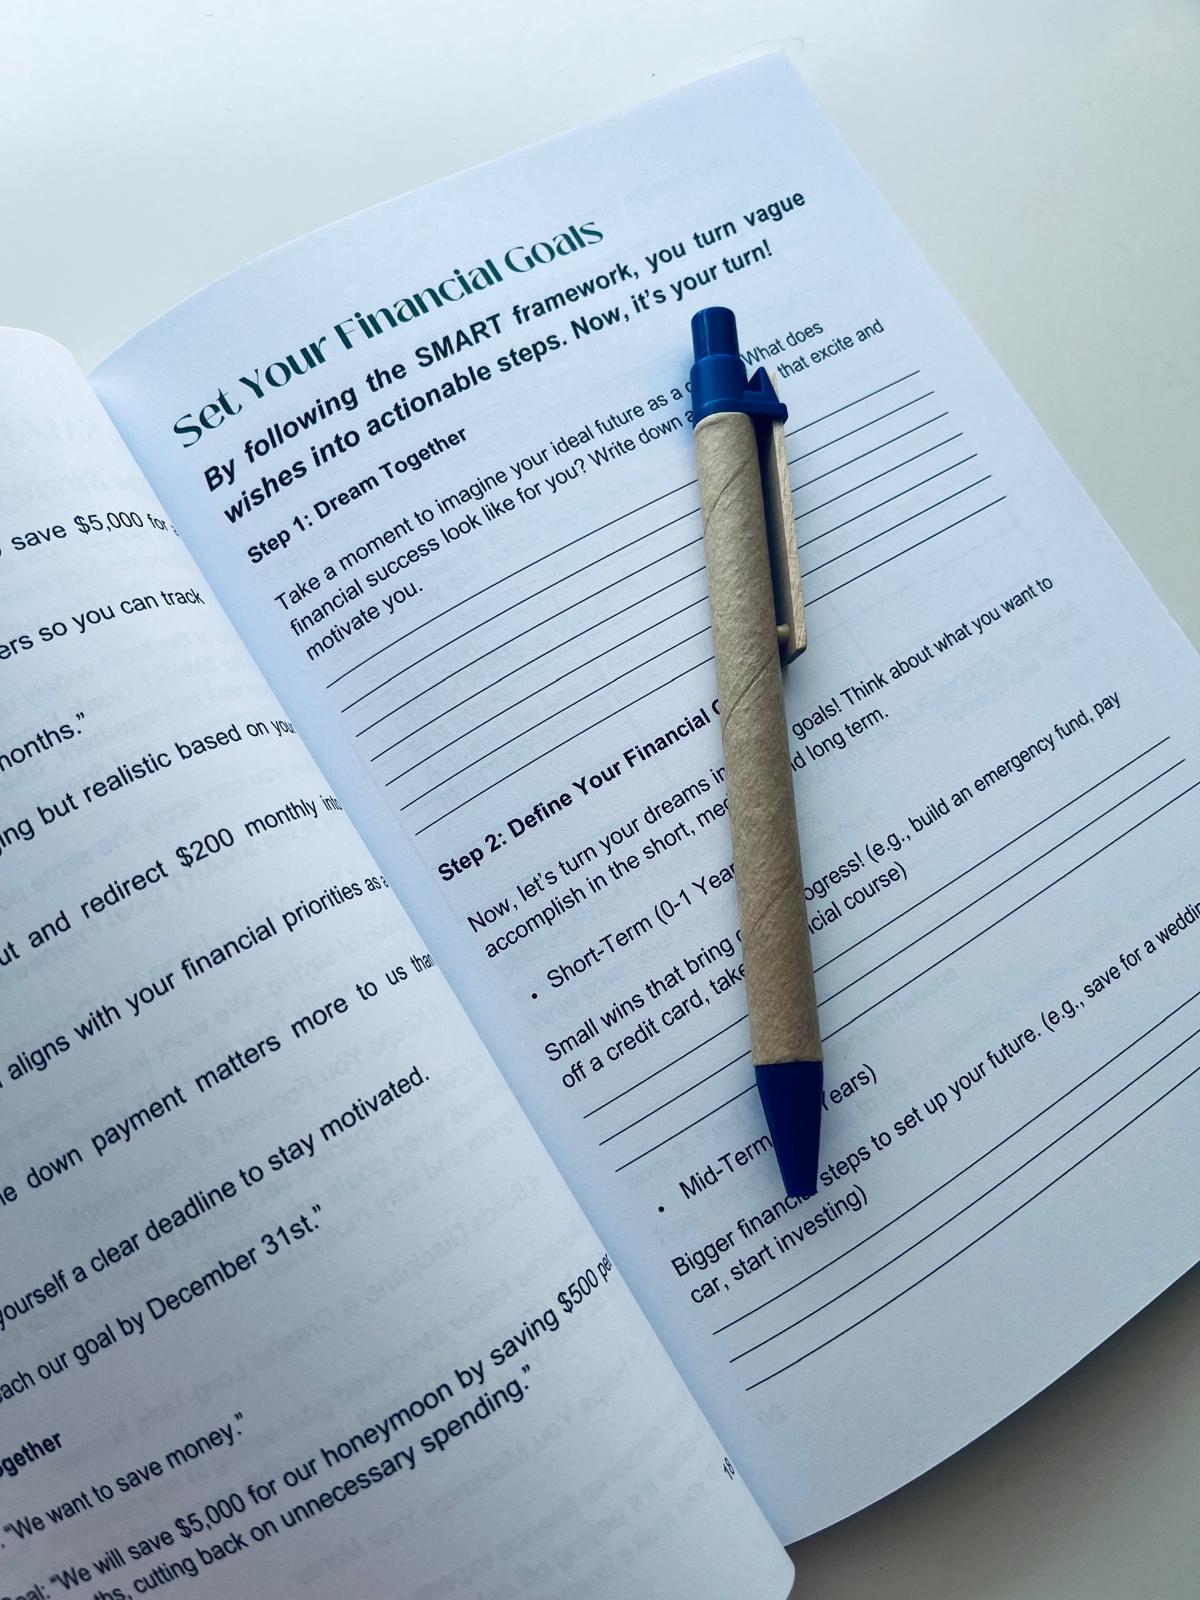 save $5,000 for
so you can track
but realistic based on your
and redirect $200 monthly into
aligns with your financial priorities as a
down payment matters more to us than
yourself a clear deadline to stay motivated.
our goal by December 31st.”
“We want to save money.”
“We will save $5,000 for our honeymoon by saving $500 per
cutting back on unnecessary spending.”
18
Set Your Financial Goals
By following the SMART framework, you turn vague
wishes into actionable steps. Now, it’s your turn!
Step 1: Dream Together
Take a moment to imagine your ideal future as a What does
financial success look like for you? Write down that excite and
motivate you.
Step 2: Define Your Financial
Now, let’s turn your dreams goals! Think about what you want to
accomplish in the short, long term.
• Short-Term (0-1
Small wins that bring (e.g., build an emergency fund, pay
off a credit card, take course)
• Mid-Term
Bigger financial steps to set up your future. (e.g., save for a wedding
car, start investing)